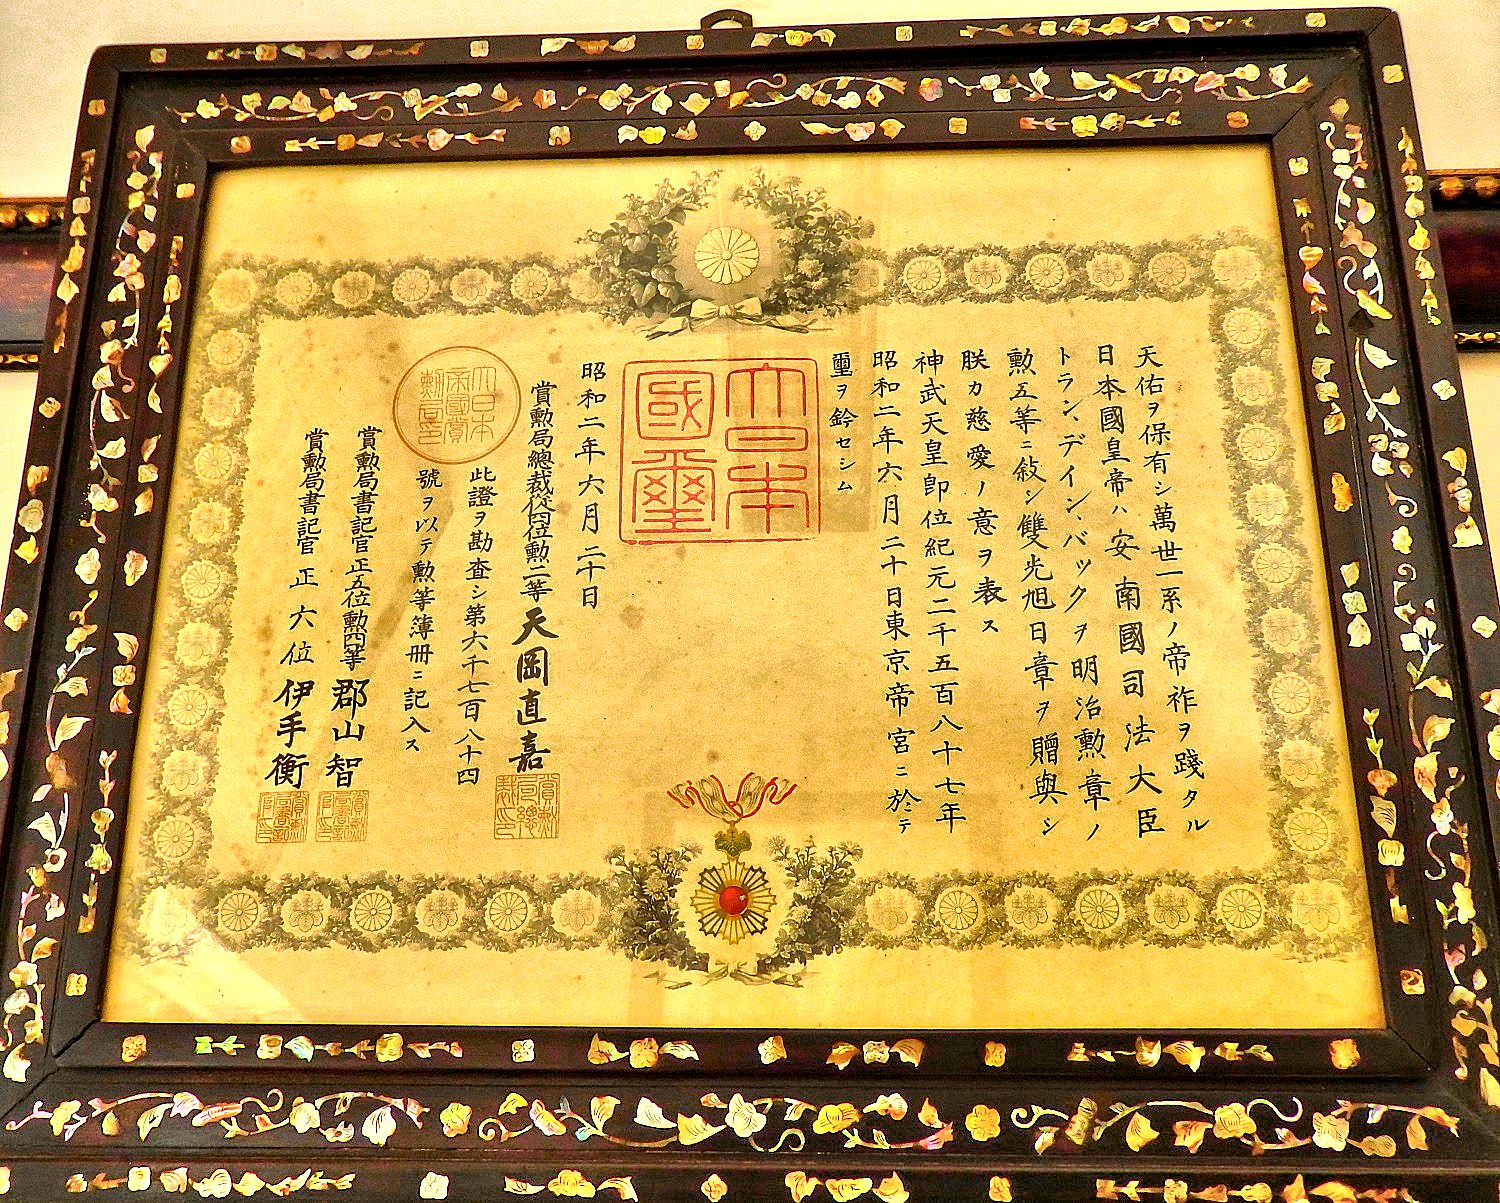 天佑ヲ保有シ萬世一系ノ帝祚ヲ踐タル
日本國皇帝ハ安南國司法大臣
トラン、デイン、バックヲ明治勲章ノ
勲五等ニ敘シ雙光旭日章ヲ贈與シ
朕カ慈愛ノ意ヲ表ス
神武天皇即位紀元二千五百八十七年
昭和二年六月二十日東京帝宮ニ於テ
璽ヲ鈐セシム
大日本
國璽
昭和二年六月二十日
賞勲局總裁從四位勲二等天岡直嘉
此證ヲ勘査シ第六千七百八十四
號ヲ以テ勲等簿冊ニ記入ス
大日本
帝國賞
勲局印
賞勲局書記官正五位勲四等郡山智
賞勲局書記官正六位伊手衡